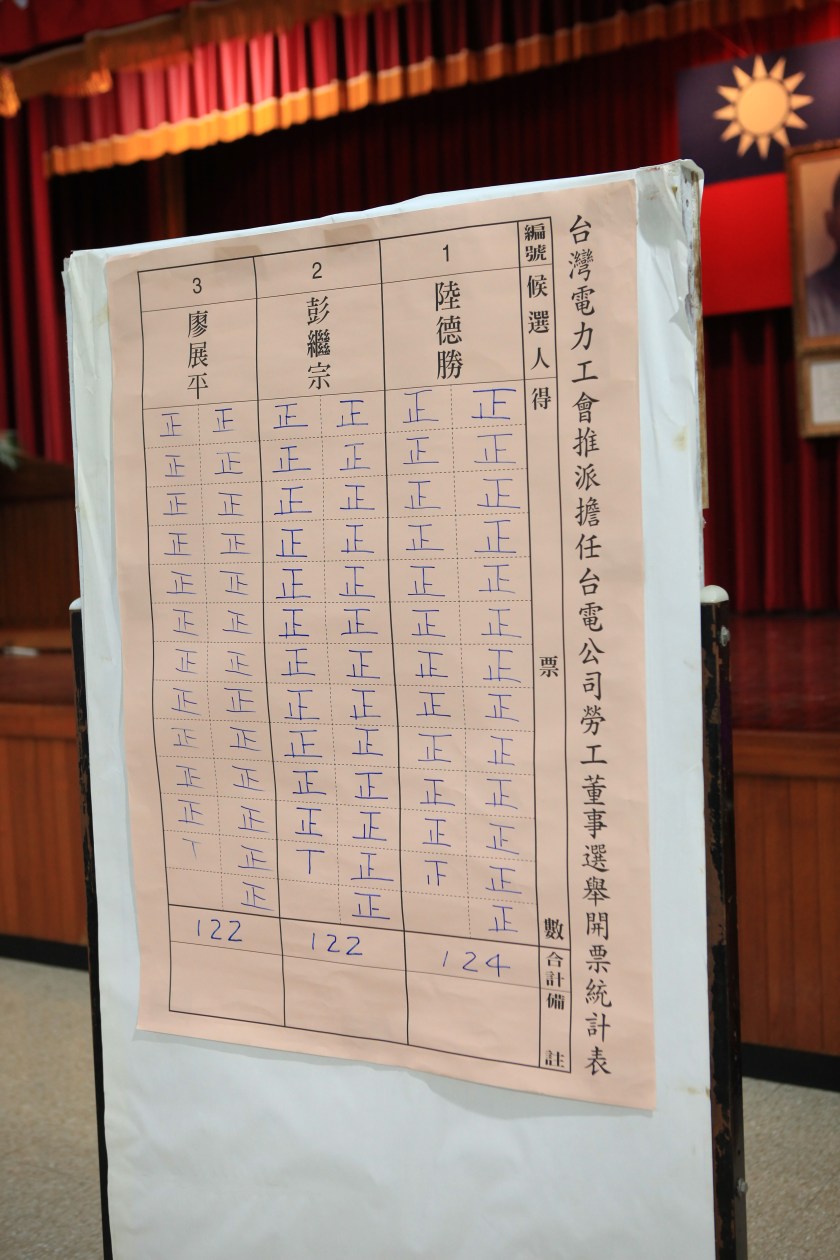 台灣電力工會推派擔任台電公司勞工董事選舉開票統計表
編號
候選人
得票數
合計
備註
1
陸德勝
正正正正正正正正正正正正正
正正正正正正正正正正正
124
2
彭繼宗
正正正正正正正正正正正正正
正正正正正正正正正正正丅
122
3
廖展平
正正正正正正正正正正正正正
正正正正正正正正正正正丅
122